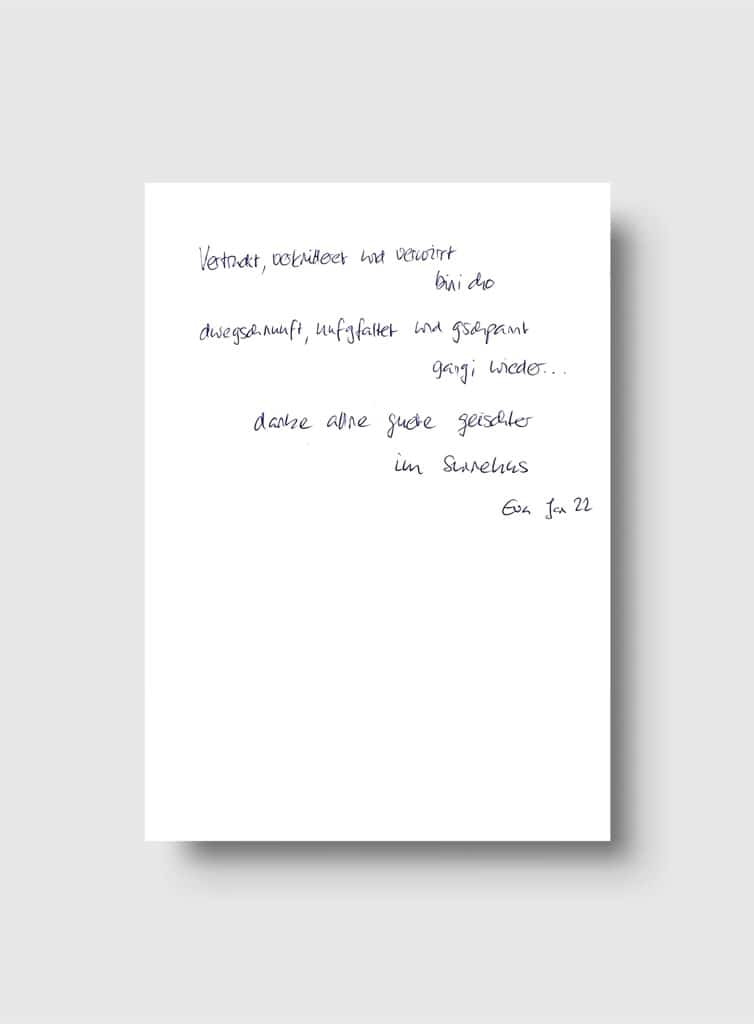 Vertrukt, verknitteret und verwirrt
bini cho
dwegschnuuft, uufgfaltet und gschpannt
gangi wieder...
danke allne guete geischter
im Sunnehus
Eva Jan 22